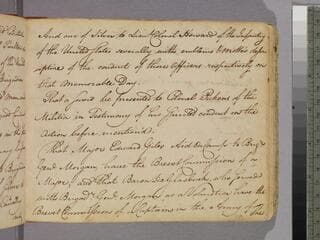 And one of Silver to Lieut Colonel Howard of the Infantry
of the United States severally with emblems & mottos
of the conduct of those Officers respectively on
that memorable Day.
That a sword be presented to Colonel Pickens of the
Militia in Testimony of his Spirited conduct in the
Action before mentioned.
That Major Edward Giles Aid de Camp to Brigr
Genl Morgan have the Brevet Commission of a
Major; and that Baron who served
with Brigadr Genl Morgan as a Volunteer have the
Brevet Commission of Captain in the Army of the